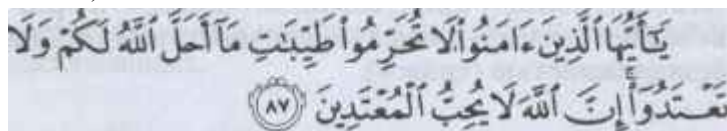 يَٰٓأَيُّهَا ٱلَّذِينَ ءَامَنُوا۟ لَا تُحَرِّمُوا۟ طَيِّبَٰتِ مَآ أَحَلَّ ٱللَّهُ لَكُمْ وَلَا
تَعْتَدُوٓا۟ۚ إِنَّ ٱللَّهَ لَا يُحِبُّ ٱلْمُعْتَدِينَ ٨٧